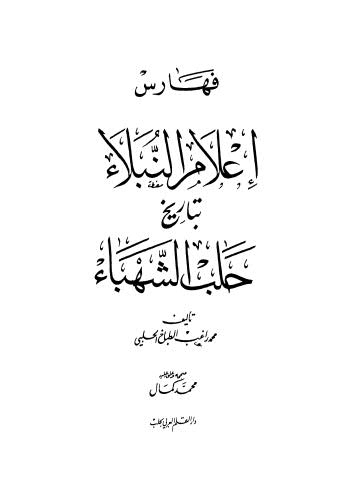 فهارس
إعلام النبلاء
بتاريخ
حلب الشهباء
تأليف
محمد راغب الطباخ الحلبي
محمد كمال
دار القلم العربي بحلب